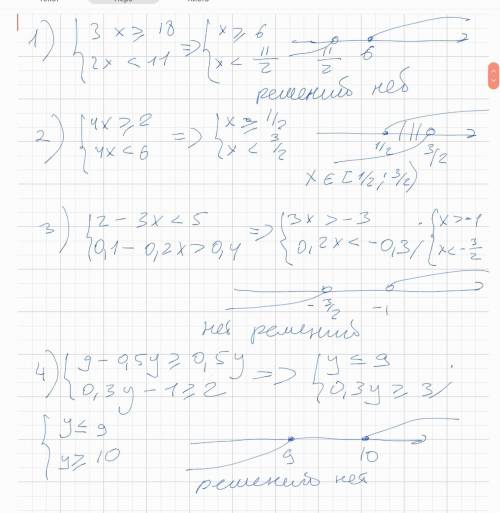 1) { 3x ≥ 18 => { x ≥ 6
{ 2x < 11 { x < 11/2
11/2 6
решений неб
2) { 4x ≥ 2 => { x ≥ 1/2
{ 4x < 6 { x < 3/2
1/2 3/2
x ∈ [1/2; 3/2)
3) { 2 - 3x < 5 => { 3x > -3 { x > -1
{ 0,1 - 0,2x > 0,4 { 0,2x < -0,3/ { x < -3/2
-3/2 -1
нет решений
4) { 9 - 0,5y ≥ 0,5y => { y ≤ 9
{ 0,3y - 1 ≥ 2 { 0,3y ≥ 3/
{ y ≤ 9
{ y ≥ 10
9 10
решений нет